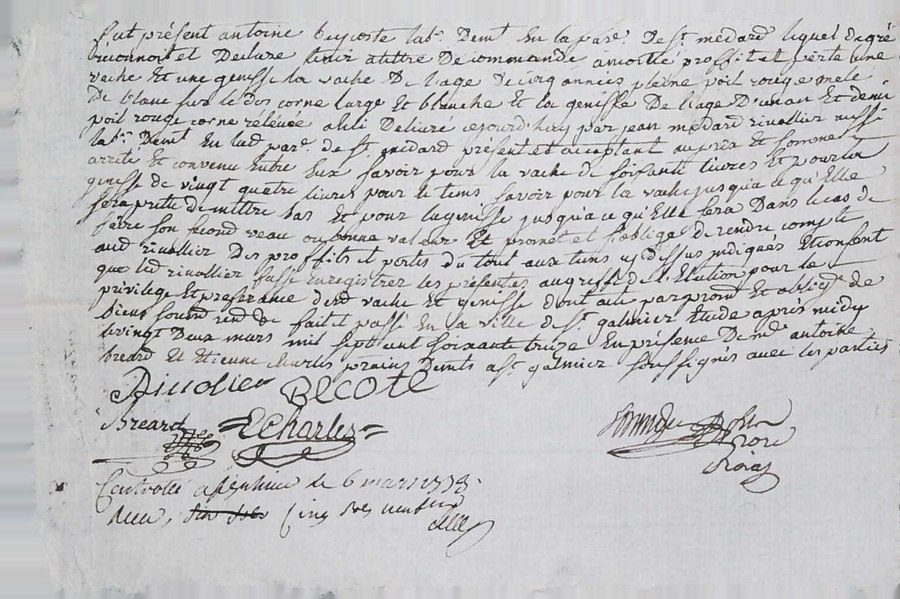 fut présent antoine becoste labr. Demt. En la parr. De st. medard lequel de gré
Reconnoit et Declare tenir atittre De commande a moitié proffit et perte une
vache Et une genisse la vache De l'age de cinq années pleine poil rouge mele
De blanc sur le dos corne large Et blanche Et la genisse De lage D'un an Et demi
poil rouge corne relevée a lui Delivré cejourd'huy par jean medard rivollier aussi
labr. Demt. En lad. parr. de st. medard present et acceptant au prix Et somme
arrêté Et convenu Entre Eux savoir pour la vache de soisante livres Et pour la
genisse de vingt quatre livres pour le tems savoir pour la vache jusqu'a ce qu'Elle
sera prete de mettre bas Et pour la genisse jusqu'a ce qu'Elle sera Dans le cas de
faire son second veau ou bonne valeur Et promet et s'oblige de rendre compte
aud. rivollier Des proffits et pertes du tout aux tems cy dessus indiqués Et consent
que led. rivollier fasse Enregistrer les présentes au greffe de l'Election pour le
privilege Et preferance desd. vache Et genisse dont acte par prom. Et oblig. de
biens soum. rend. de fait et passé En la ville de st. galmier Etude après midy
le vingt Deux mars mil sept cent soixante treize En présence De me. antoine
breard Et Etienne charles prains Demts. a st. galmier soussignés avec les parties
Rivolier BECOTE
Breard ECharles
Controllé a le 6 mars 1773.
Reçu, six sols Cinq sols